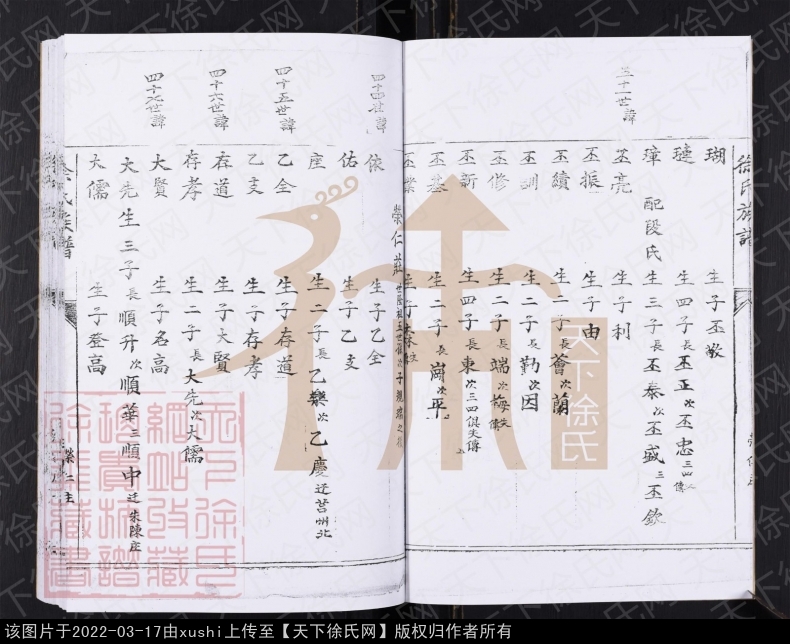 徐氏族譜
五十一世諱
瑚 生子丕敬
璉 生四子長丕正次丕忠三四
璋 配段氏 生三子長丕泰次丕盛三丕欽
丕亮 生子利
丕振 生子由
丕績 生二子長薈次蘭
丕訓 生二子長勤次因
丕修 生二子長端次梅失傳
丕新 生四子長東次三四俱失傳
丕基 生二子長崗次平
丕業 生子
榮仁莊
四十四世諱
依 生子乙全
佑 生子乙支
座 生二子長乙樂次乙慶迁莒州北
四十五世諱
乙全 生子存道
乙支 生子存孝
四十六世諱
存道 生子大賢
存孝 生二子長大先次大儒
四十七世諱
大賢 生子名高
大先 生三子長順升次順華三順中迁朱陳庄
大儒 生子登高
天下徐氏
天下徐氏网
该图片于2022-03-17由xushi上传至【天下徐氏网】版权归作者所有